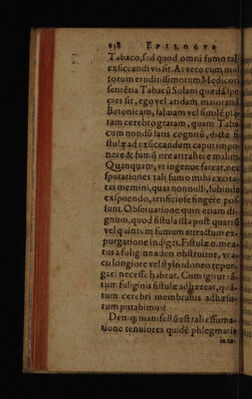 118 EPILOGVS
Tabaco, sed quod omni fumo tali
exsiccandi vis sit. At vero cum mul
torum eruditissimorum Medicorū
sentētia Tabacū Solani quædā spe
cies sit, ego vel aridam maioranā,
Betonicam, saluiam vel simile plā
tam cerebro gratam, quam Taba
cum nondū satis cognitū, dictæ fi
stulæ ad exsiccandum caput impo
nere & fumū ore attrahere malim.
Quanquam, vt ingenue fatear, nec
sputationes tali fumo mihi excita
tas memini, quas nonnulli, subinde
expuendo, artificiose fingere pos
sunt. Obseruatione quin etiam di
gnum, quod fistula ista post quartū
vel quintum fumum attractum ex
purgatione indiget. Fistulæ n. mea
tos a fuligine adeo obstruitur, vt a
cu longiore vel stylo idoneo repur
gari necesse habeat. Cum igitur tā
tum fuliginis fistulæ adhæreat, quā
tum cerebri membranis adhæsu
rum putabimus?
Deniq; manifestū est tali effuma
tione tenuiores quidē phlegmatis